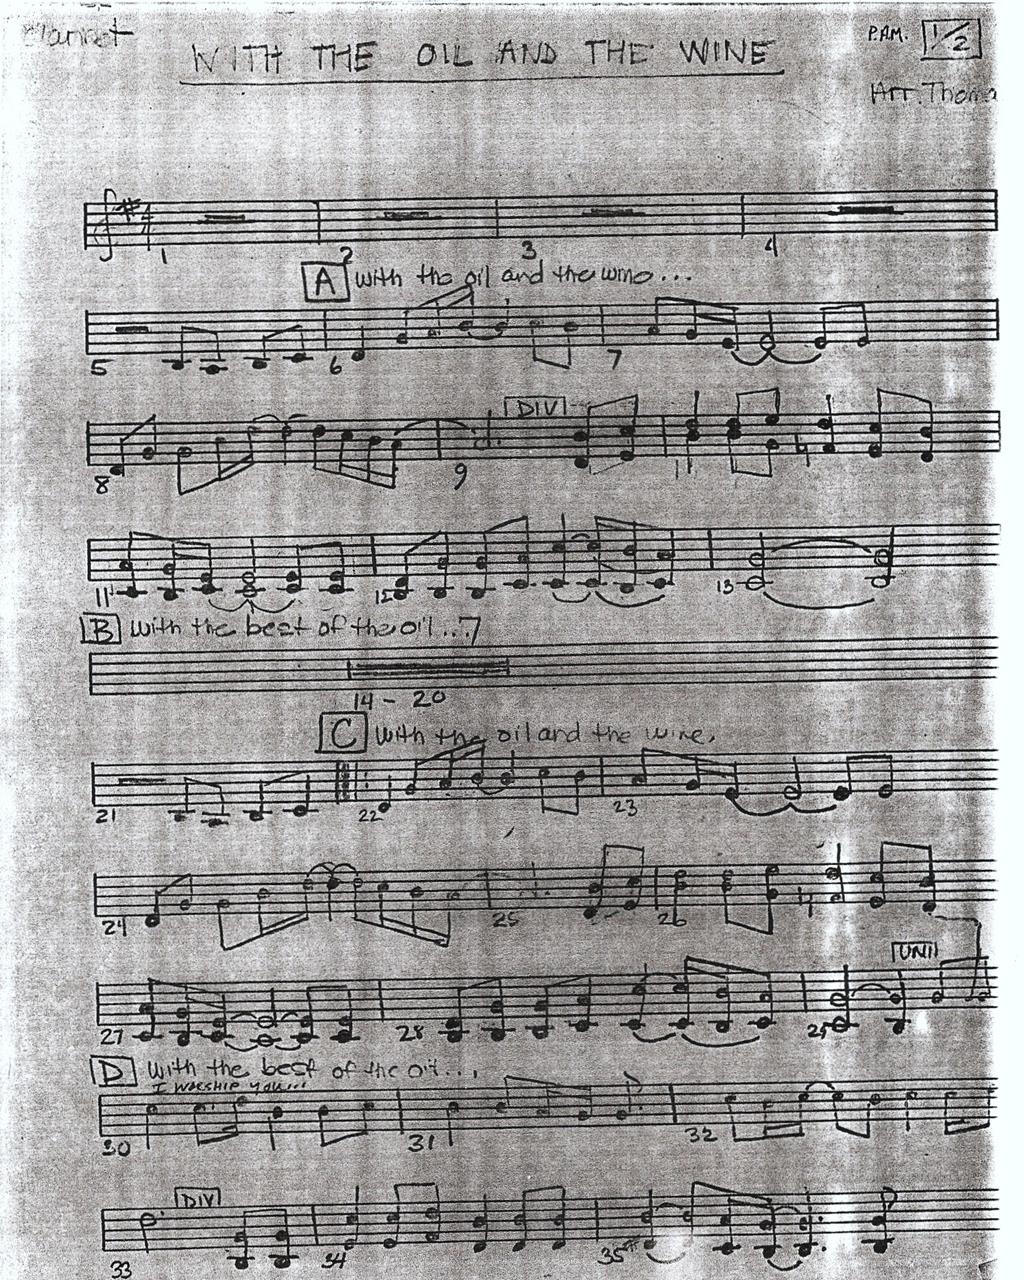 Clarinet
P.A.M. 1/2
WITH THE OIL AND THE WINE
Arr. Thoma
1 2 3 4
A with the oil and the wine...
5 6 7
DIV
8 9 11
11 12 13
B with the best of the oil...7
14 - 20
C with the oil and the wine,
21 22 23
24 25 26
UNI
27 28 29
D with the best of the oil...
I worship you...
30 31 32
DIV
33 34 35